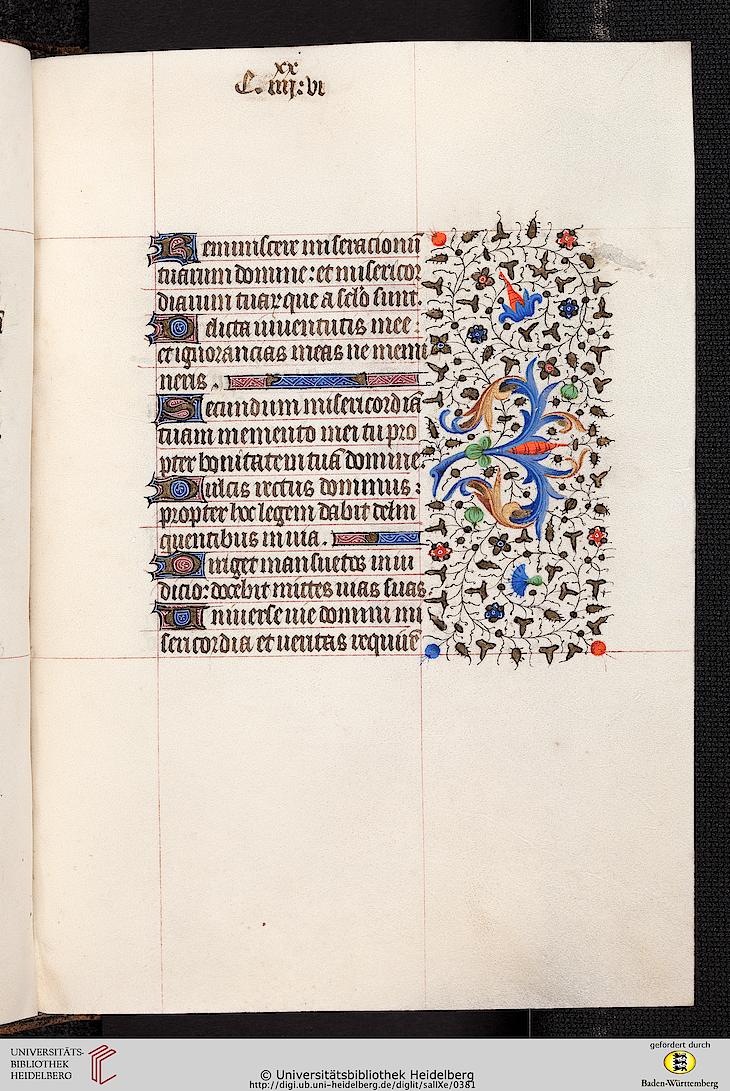 xx
C. iiij: vi
Reminiscere miseracionū
tuarum domine: et misericor
diarum tuarque a sclo sunt.
Delicta iuuentutis mee:
et ignorancias meas ne memi
neris.
Secundum misericordiā
tuam memento mei tu pro
pter bonitatem tuā domine
Dulcis rectus dominus:
propter hoc legem dabit delin
quentibus in uia.
Diriget mansuetos in iu
dicio: docebit mittes uias suas
Uniuerse uie domini mi
sericordia et ueritas requirē
UNIVERSITÄTS-
BIBLIOTHEK
HEIDELBERG
© Universitätsbibliothek Heidelberg
http://digi.ub.uni-heidelberg.de/diglit/salIXe/0381
gefördert durch
Baden-Württemberg